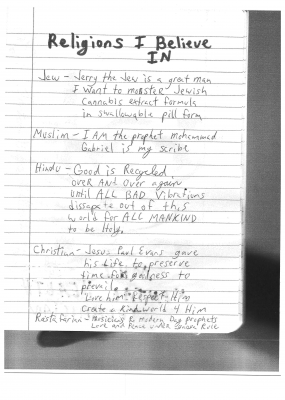 Religions I Believe
IN
Jew - Jerry the Jew is a great man
I want to Jewish
Cannabis extract formula
in swallowable pill form
Muslim - I AM the prophet mohammad
Gabriel is my scribe
Hindu - Good is Recycled
over AND over again
until ALL BAD Vibrations
dissapate out of this
world for ALL MANKIND
to be Holy.
Christian - Jesus Paul Evans gave
his life to preserve
time for goodness to
prevail
Love him, Respect Him
create a Kind world 4 Him
Rastafarian - Musicians R Modern Day prophets
Love and Peace under Rose